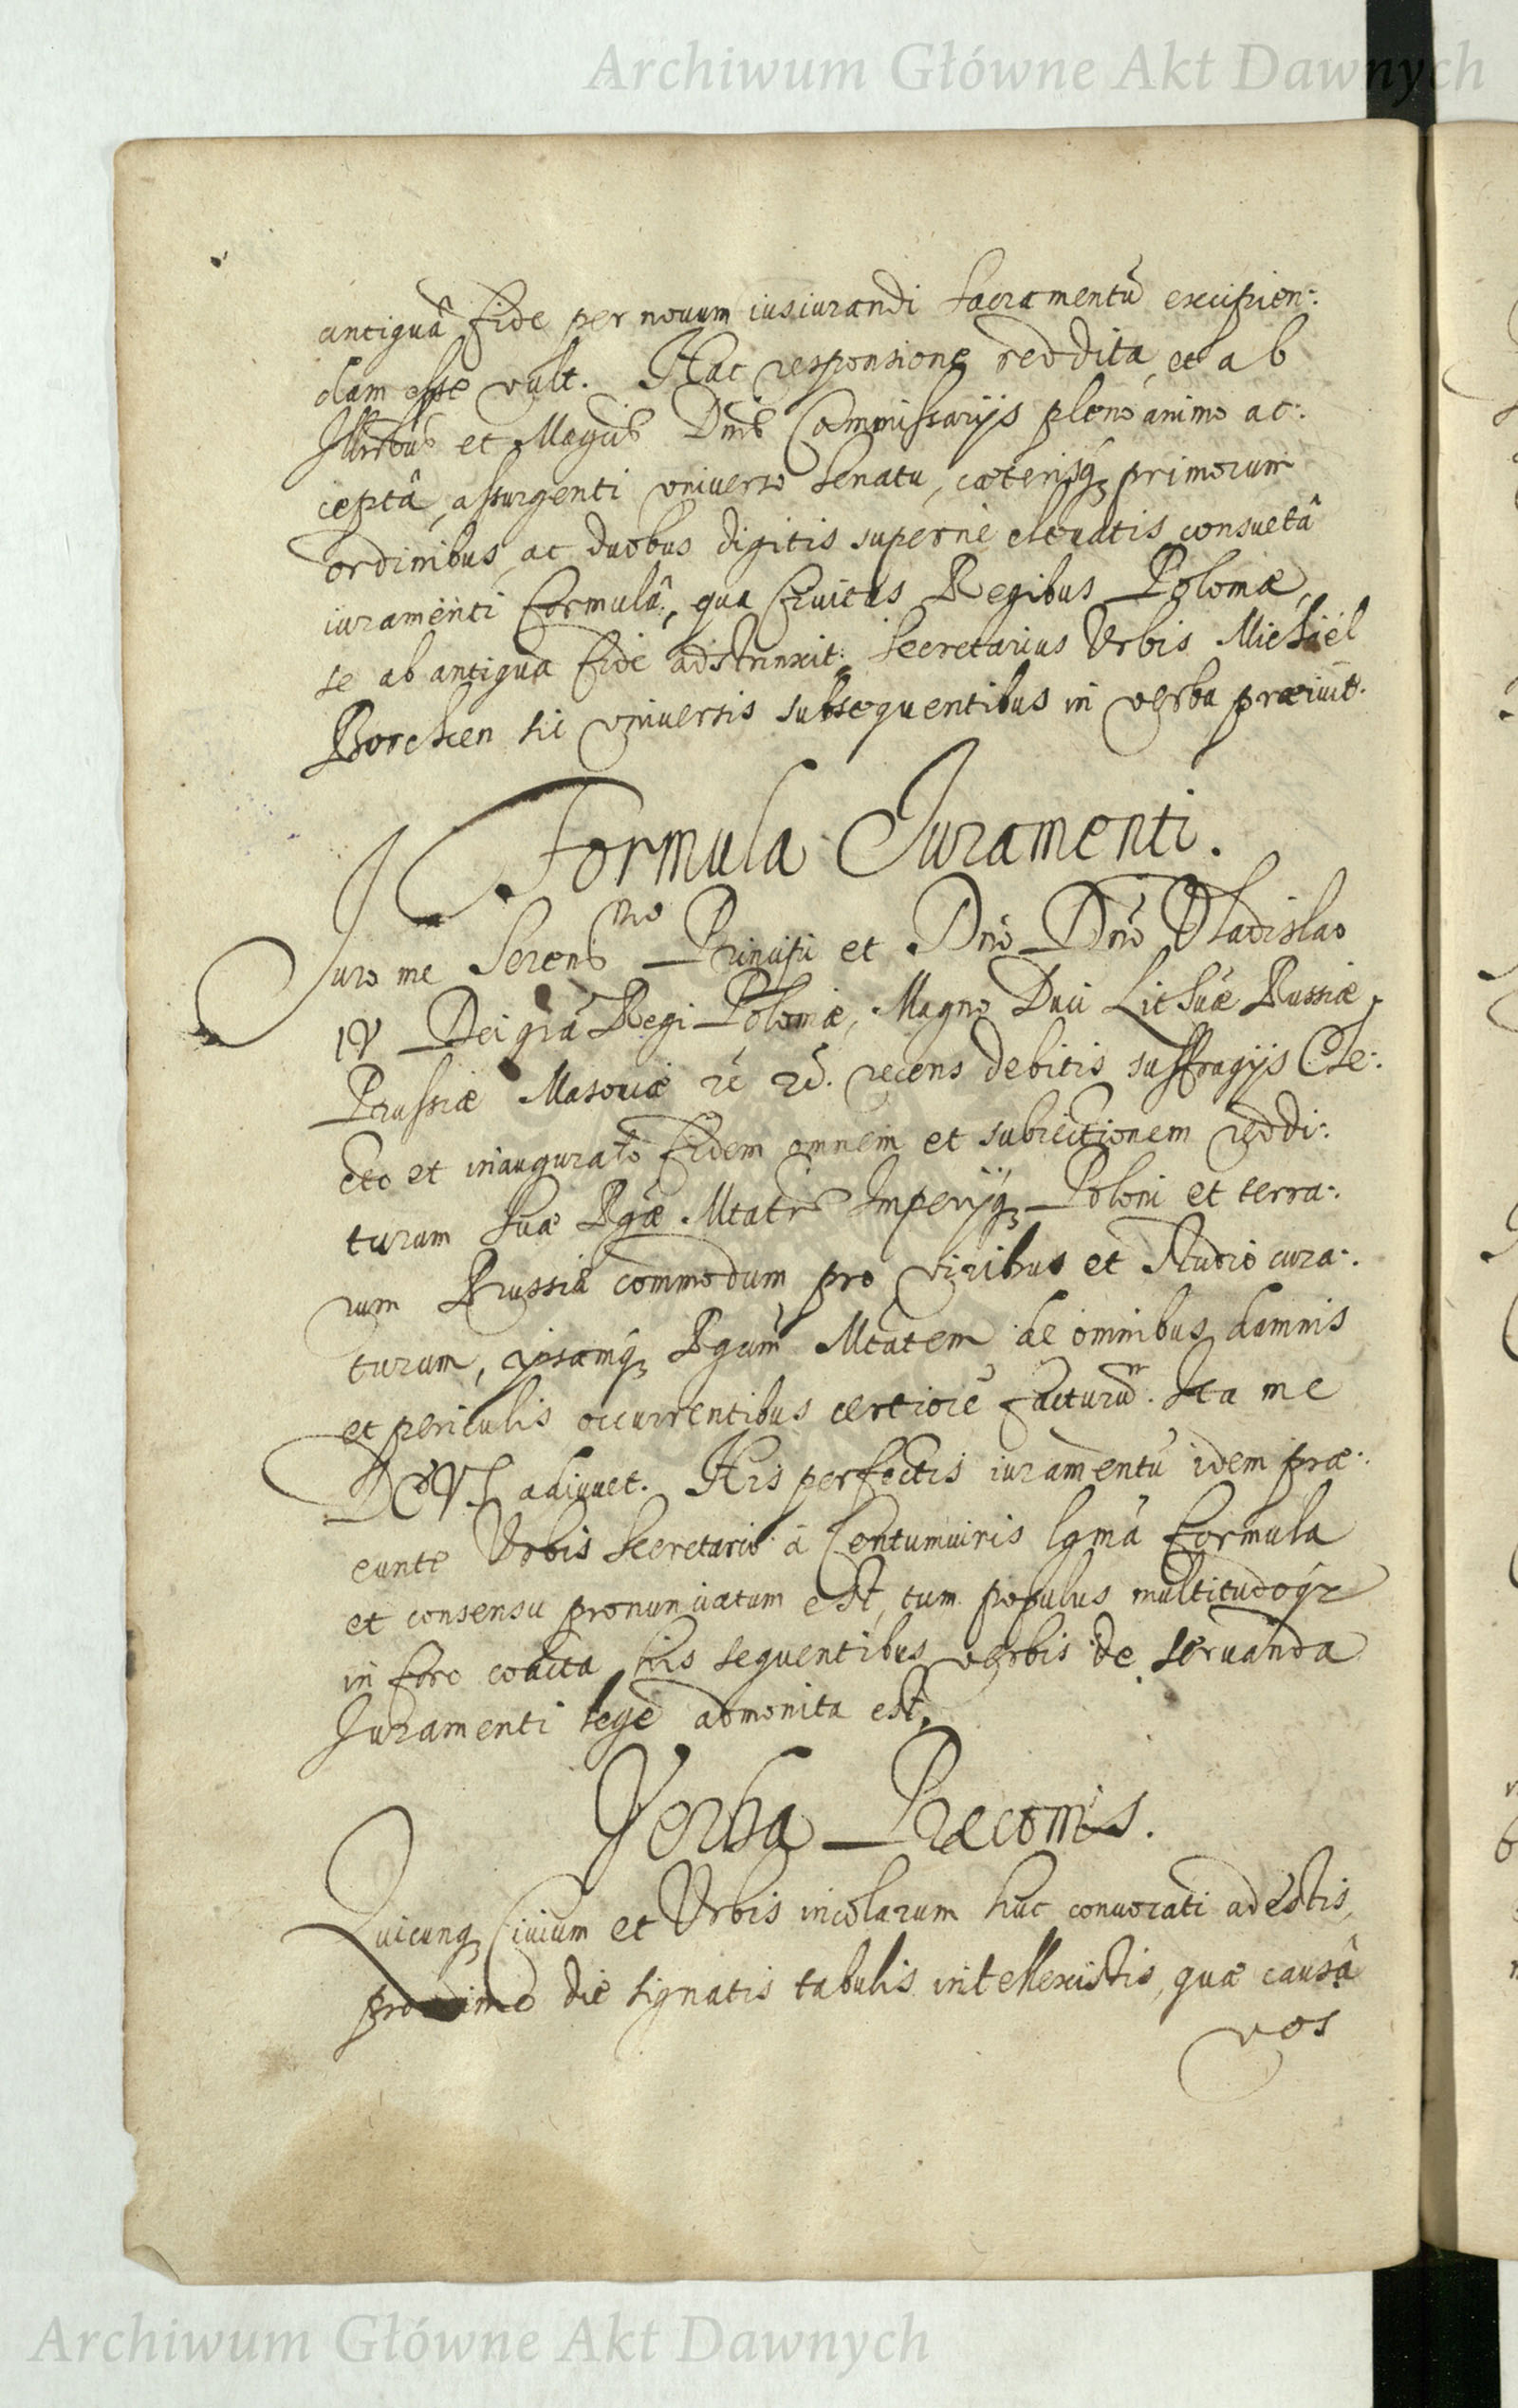 Archiwum Główne Akt Dawnych
antiquâ fide per nouum iusiurandi Sacramentũ excipien:
dam esse vult. Hac responsione reddita, et ab
Illribus et Magcis Dnis Commissarijs pleno animo ac:
ceptâ, assurgenti vniuerso Senatu, cæterisq₃ primorum
ordinibus, ac duobus digitis supernè eleuatis consuetâ
iuramenti formulâ, qua Ciuitas Regibus Poloniæ,
se ab antiqua fide adstrinxit: Secretarius Vrbis Michaël
Borchen sic vniuersis subsequentibus in verba præiuit.
Formula Iuramenti.
Iuro me Serenismo Principi et Dno Dno Vladislao
IV Dei grã Regi Poloniæ, Magno Duci Lithuæ Russiæ,
Prussiæ Masouiæ rc̃ rc̃. recens debitis suffragijs Ele:
cto et inaugurato fidem omnem et subiectionem reddi:
turum Suæ Rgæ Mtatis Imperijq₃ Poloni et terra:
rum Prussiæ commodum pro viribus et studio cura:
turum, ipsamq₃ Rgiam Mtatem de omnibus damnis
et periculis occurrentibus certiorẽ facturũm. Ita me
DEVS adiuuet. His perfectis iuramentũ idem præ:
eunte Vrbis Secretario à Centumuiris eâdem formula
et consensu pronunciatum est, tum populus multitudoq₃
in foro coacta his sequentibus verbis de seruanda
Juramenti lege admonita est.
Verba Præconis.
Quicunq₃ Ciuium et Vrbis incolarum huc conuocati adestis,
proximo die signatis tabulis intellexistis, quæ causâ
vos
Archiwum Główne Akt Dawnych